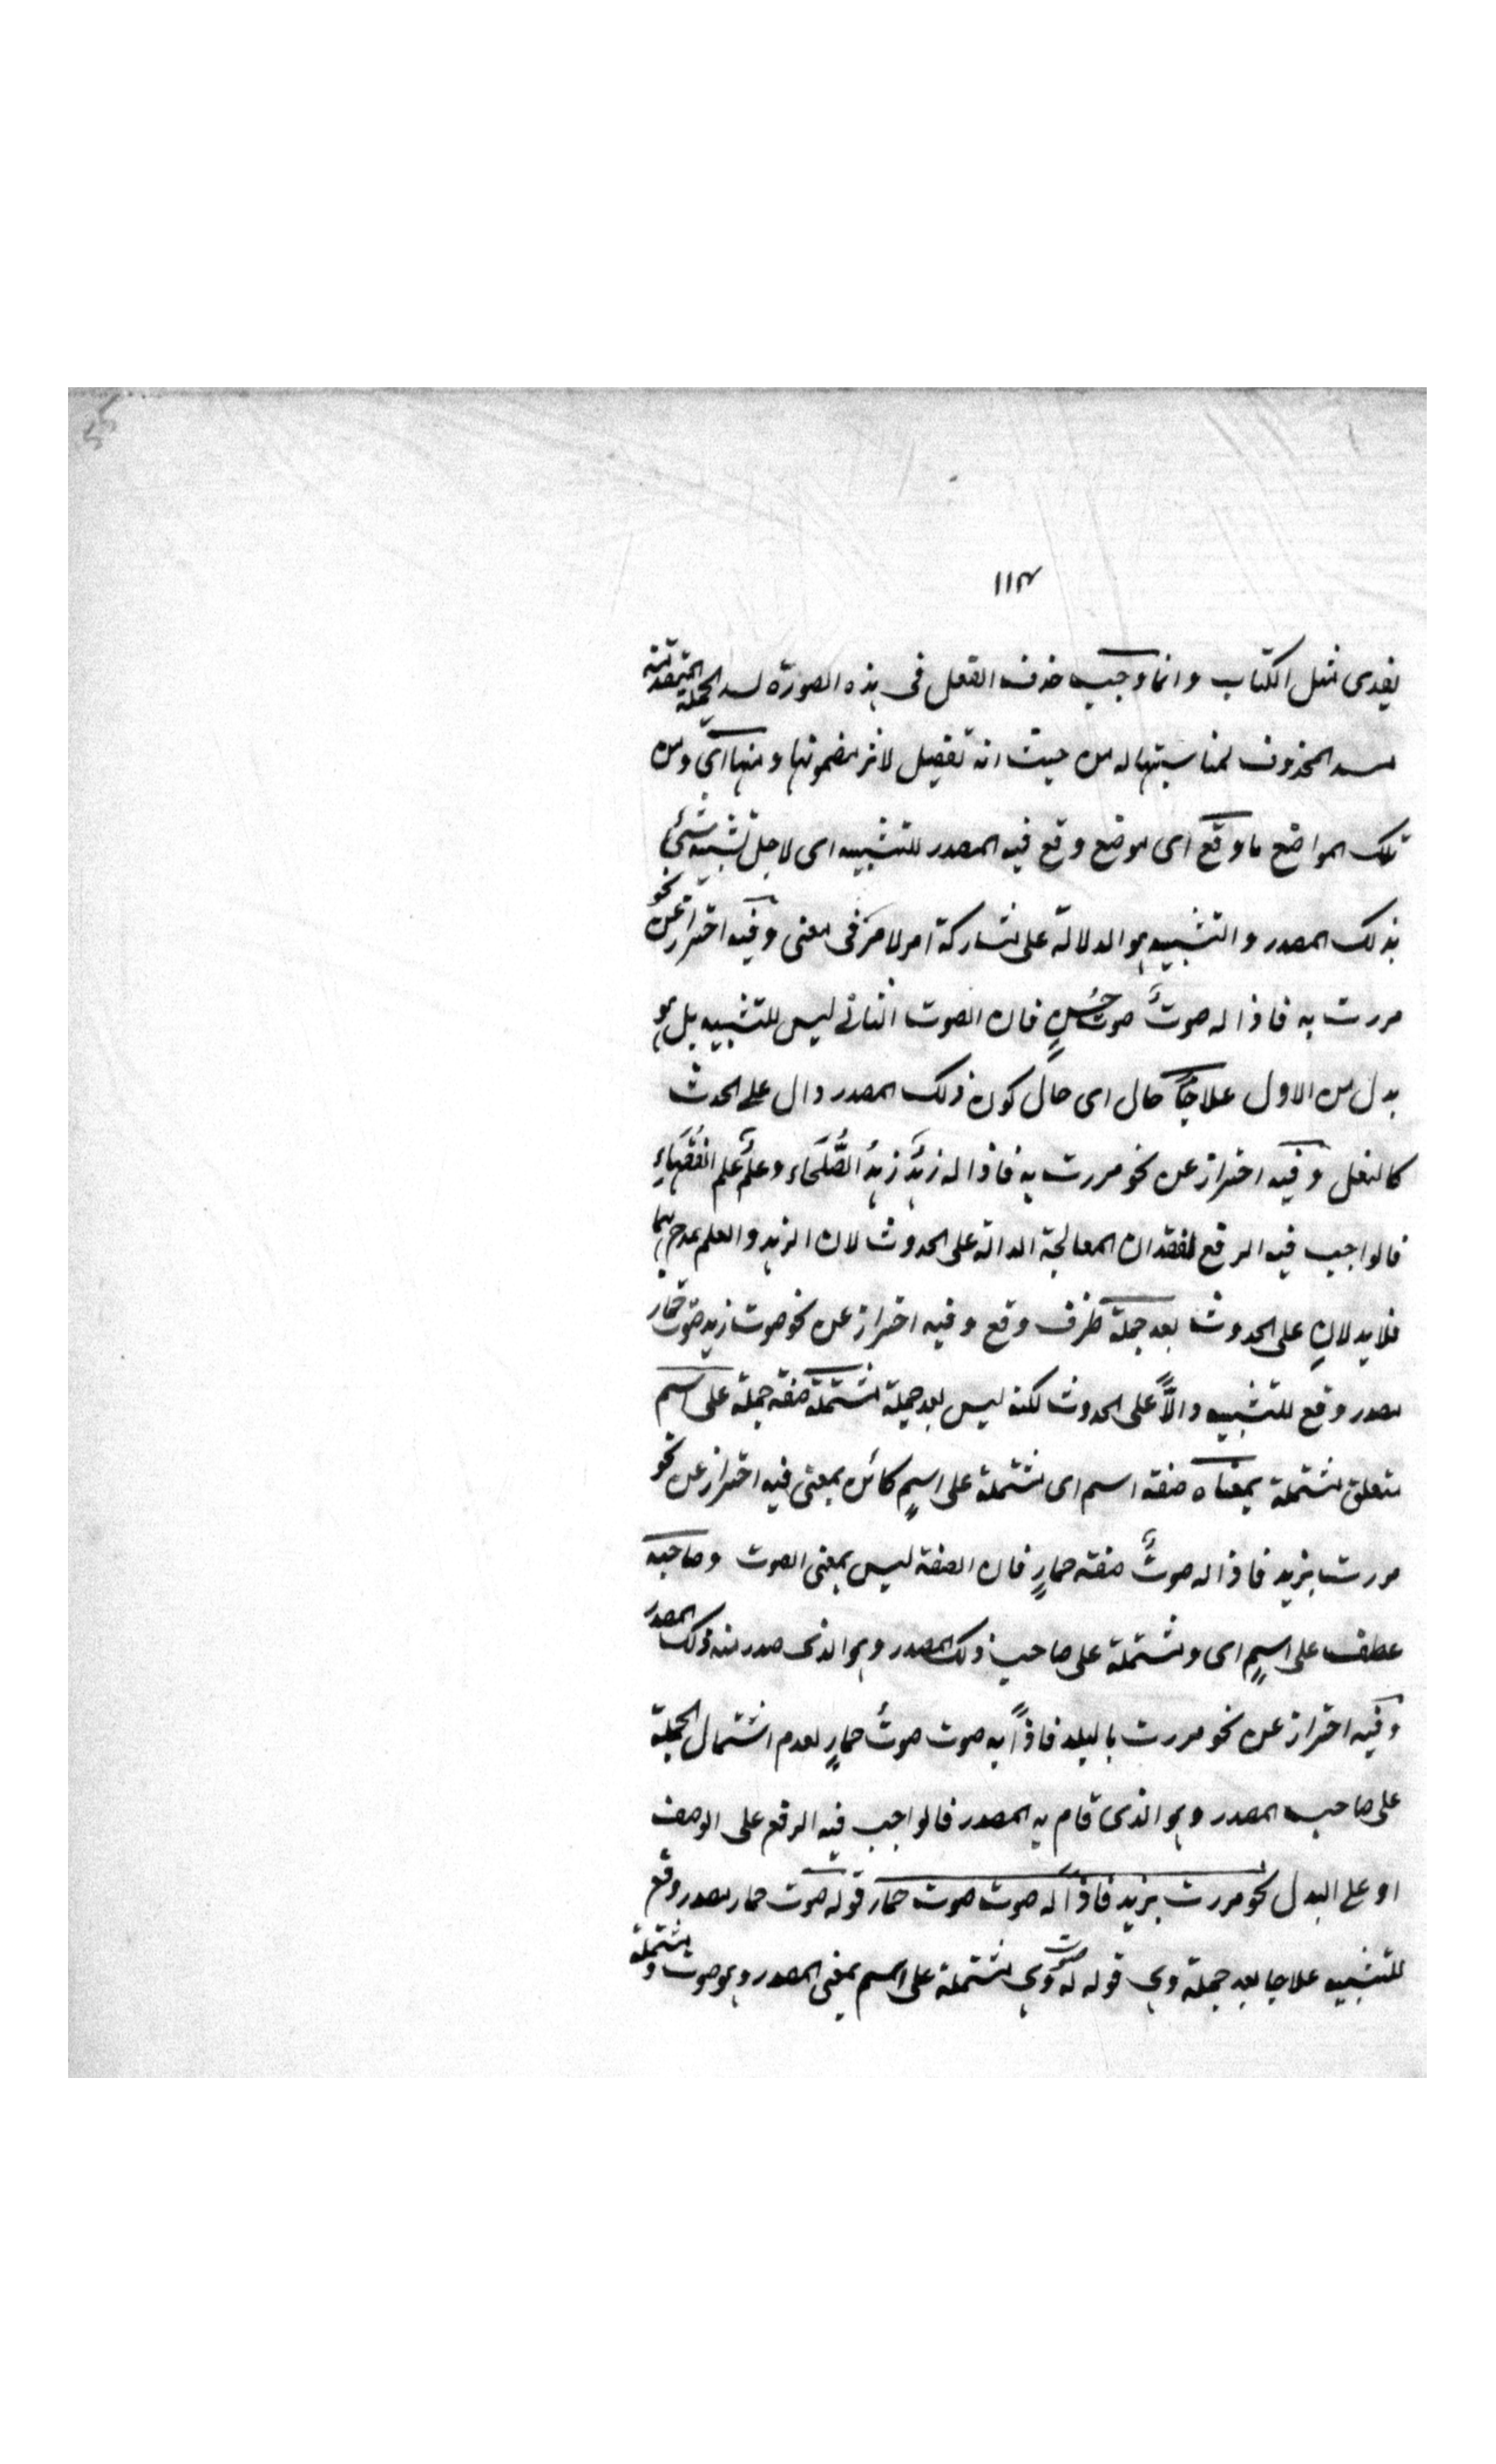 ١١٣
يفدى مثل الكتاب وانما وجب حذف الفعل فى هذه الصورة لسد الجملة المتقدمة
مسد المحذوف لمناسبتها له من حيث انه تفصيل لاثر مضمونها ومنها اى ومن
تلك المواضع ما وقع اى موضع وقع فيه المصدر للتشبيه اى لاجل تشبيه شئ
بذلك المصدر والتشبيه هو الدلالة على مشاركة امر لامر فى معنى وفيه احتراز عن نحو
مررت به فاذا له صوتٌ صوت حسنٍ فان الصوت الثانى ليس للتشبيه بل هو
بدل من الاول علاجًا حال اى حال كون ذلك المصدر دال على الحدث
كالفعل وفيه احتراز عن نحو مررت به فاذا له زهدٌ زهدُ الصُّلَحَاء وعلمٌ علم الفُقَهَاءِ
فالواجب فيه الرفع لفقدان المعالجة الدالة على الحدوث لان الزهد والعلم
فلا يدلانِ على الحدوث بعد جملة ظرف وقع وفيه احتراز عن نحو صوت زيد صوت حمار
مصدر وقع للتشبيه دالًّا على الحدوث لكنه ليس بعد جملة مشتملة صفة جملة على اسم
متعلق مشتملة بمعناه صفة اسم اى مشتملة على اسمٍ كائن بمعنى فيه احتراز عن نحو
مررت بزيد فاذا له صوتٌ صفة حمارٍ فان الصفة ليس بمعنى الصوت وصاحبه
عطف على اسمٍ اى ومشتملة على صاحب ذلك المصدر وهو الذى صدر منه ذلك المصدر
وفيه احتراز عن نحو مررت بالبلد فاذًا به صوت صوتُ حمارٍ لعدم اشتمال الجملة
على صاحب المصدر وهو الذى قام به المصدر فالواجب فيه الرفع على الوصف
او على البدل نحو مررت بزيد فاذا له صوت صوت حمار قوله صوت حمار مصدر وقع
للتشبيه علاجا بعد جملة وهى قوله له صوت وهى مشتملة على اسم بمعنى المصدر وهو صوت ومشتملة